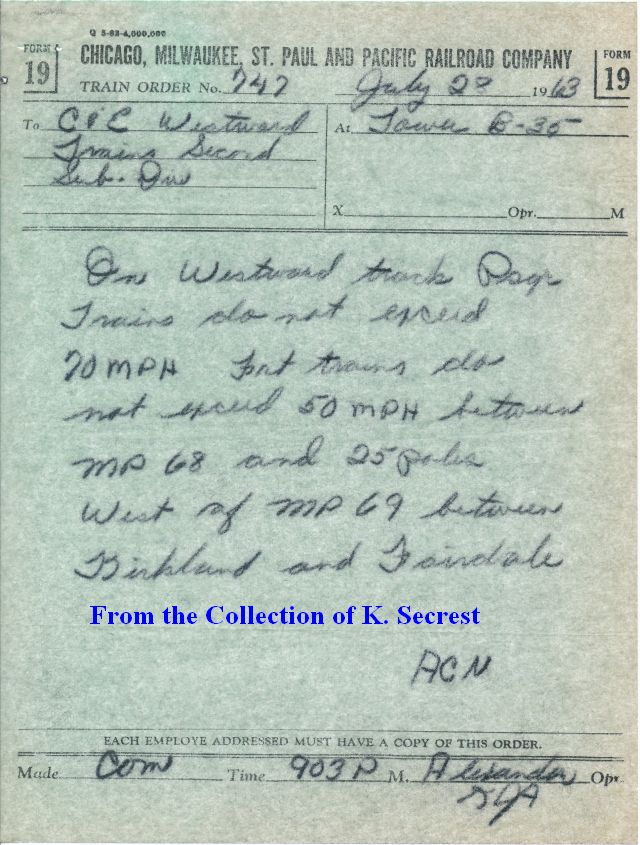 Q 5-62-4,000,000
FORM 19
CHICAGO, MILWAUKEE, ST. PAUL AND PACIFIC RAILROAD COMPANY
FORM 19
TRAIN ORDER No. 747 July 28 1963
To C&E Westward
Trains Second
Sub. Div
At Tower B-35
X Opr. M
On Westward track Psgr
Trains do not exceed
70 MPH Frt trains do
not exceed 50 MPH between
MP 68 and 25 poles
West of MP 69 between
Kirkland and Fairdale
From the Collection of K. Secrest
ACN
EACH EMPLOYE ADDRESSED MUST HAVE A COPY OF THIS ORDER.
Made Com Time 903 P M. Alexander Opr.